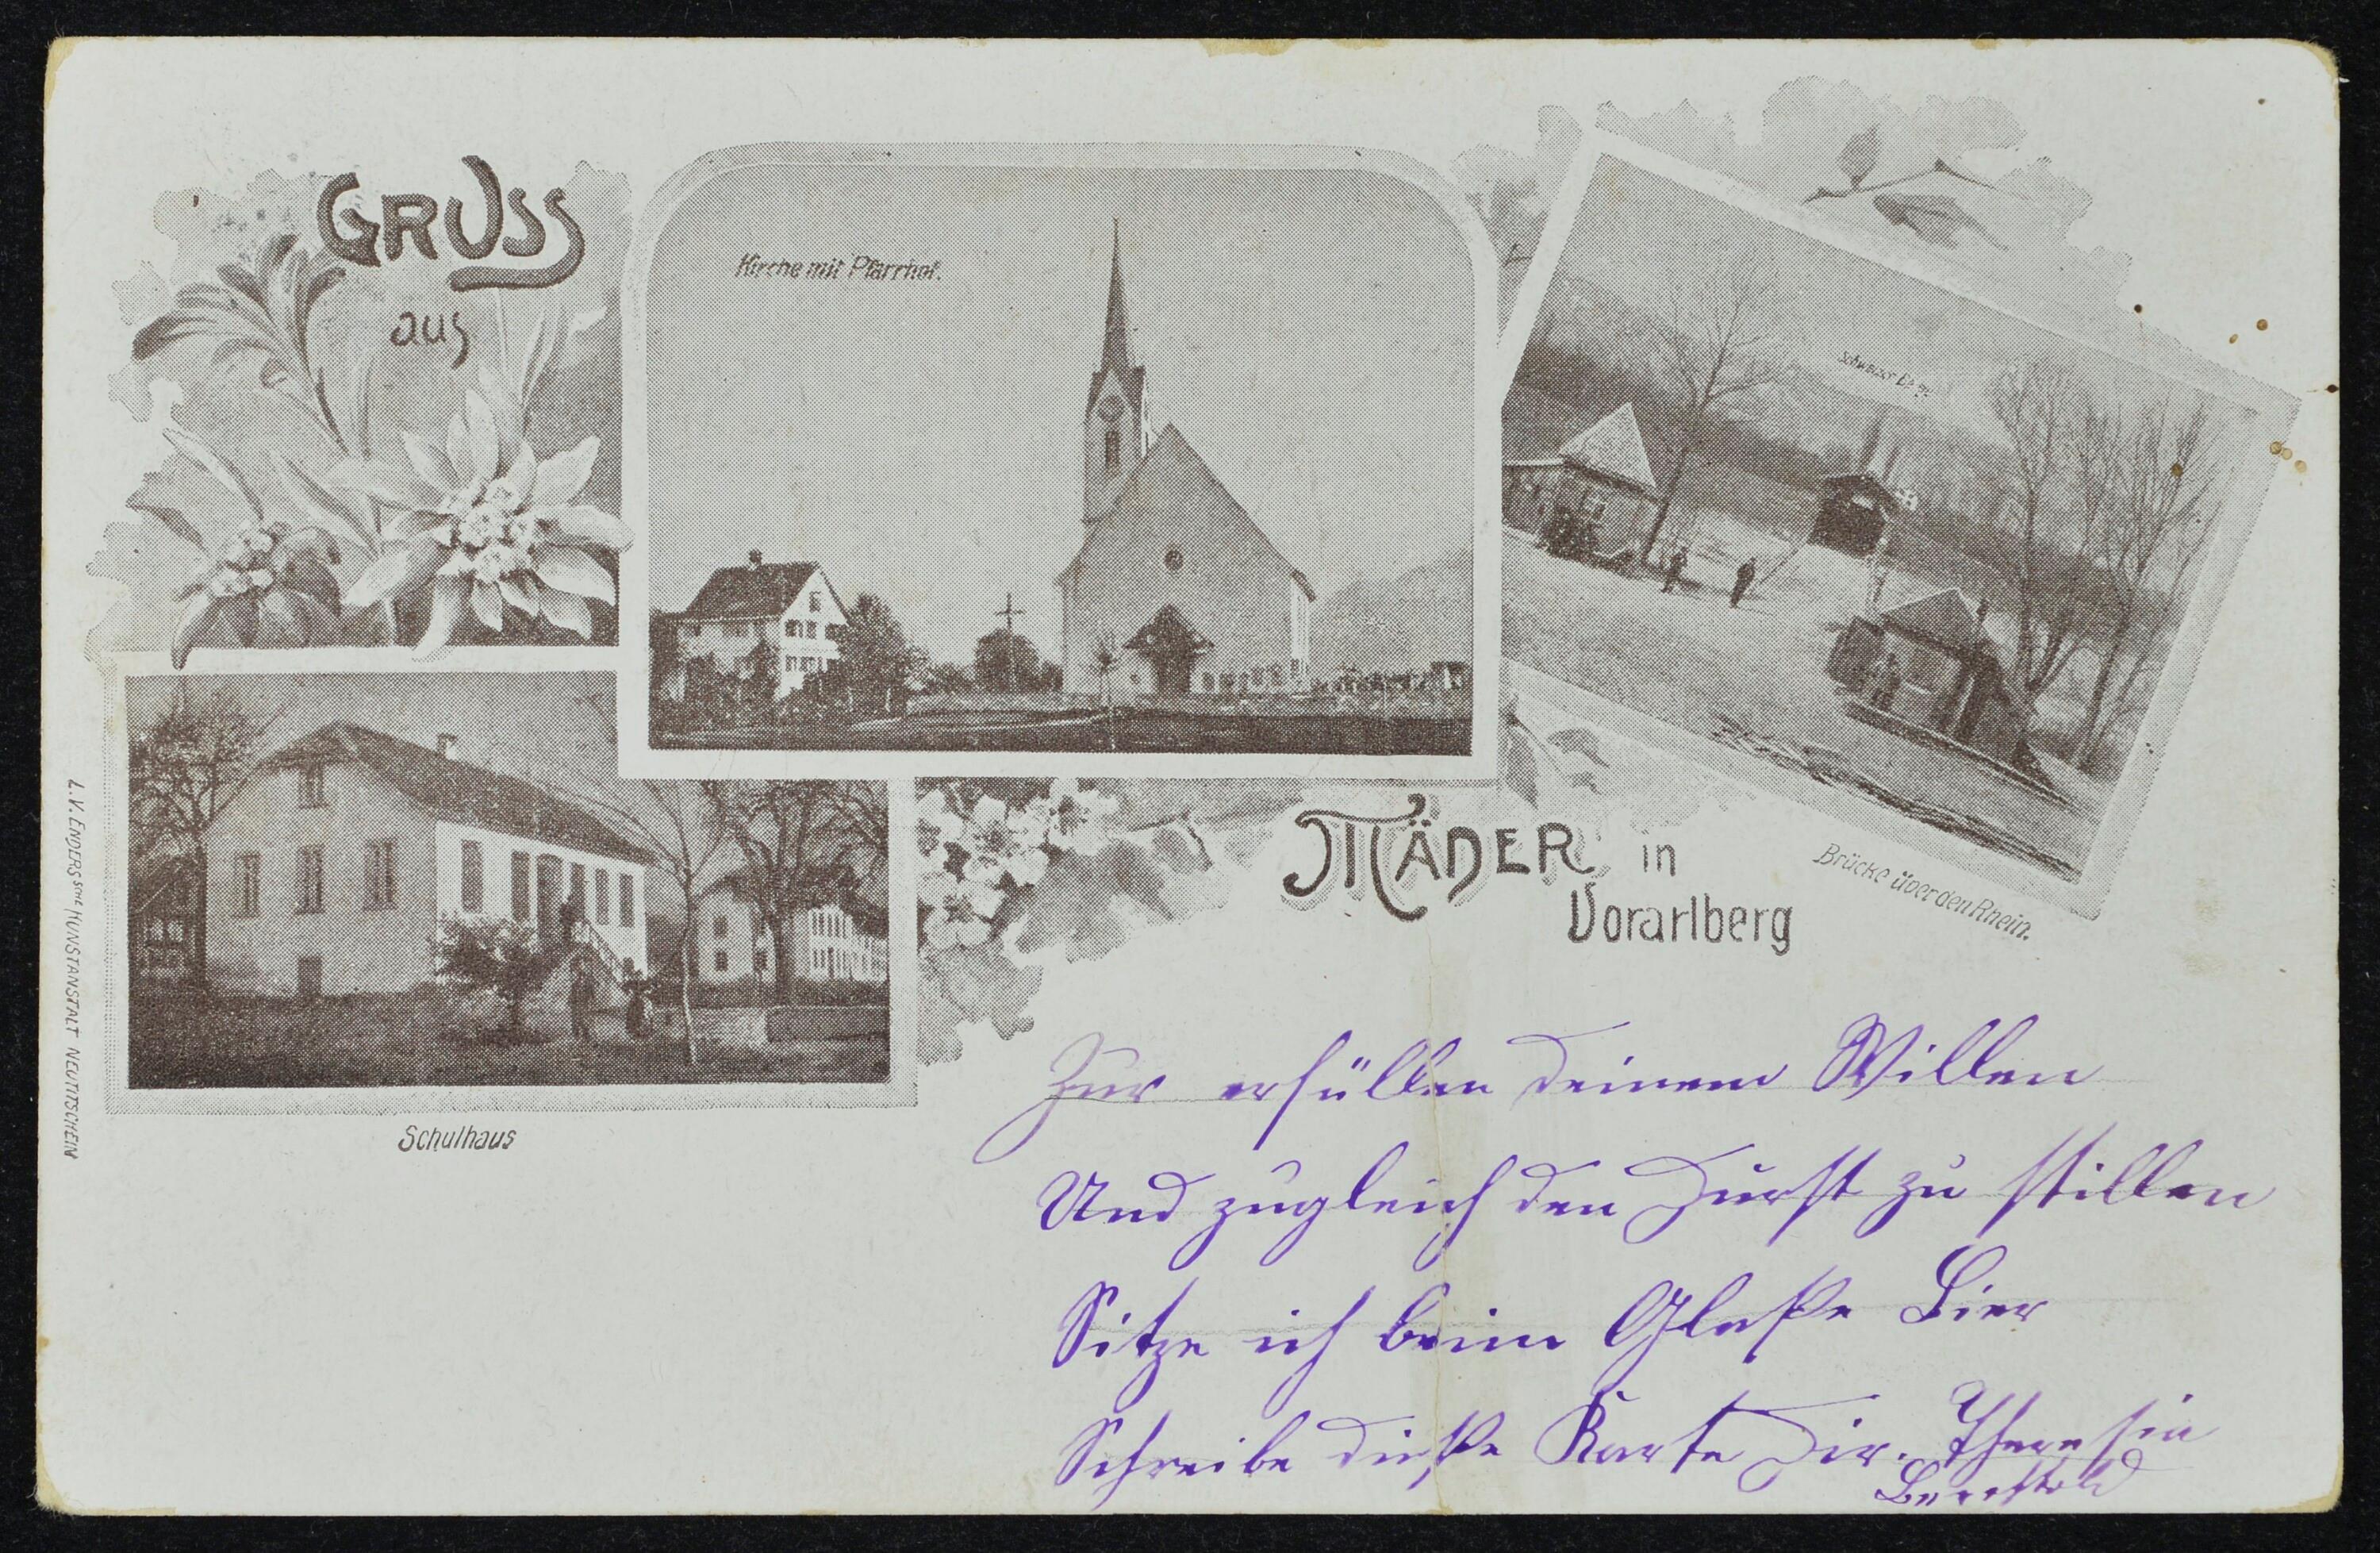 GRUSS
aus
Kirche mit Pfarrhof.
Schweizer Berge
MÄDER in
Vorarlberg
Brücke über den Rhein.
Schulhaus
L. V. ENDERS'sche KUNSTANSTALT NEUTITSCHEIN
Zur erfüllen deinem Willen
Und zugleich den Durst zu stillen
Sitze ich beim Glaße Bier
Schreibe dieße Karte Dir. Theresia